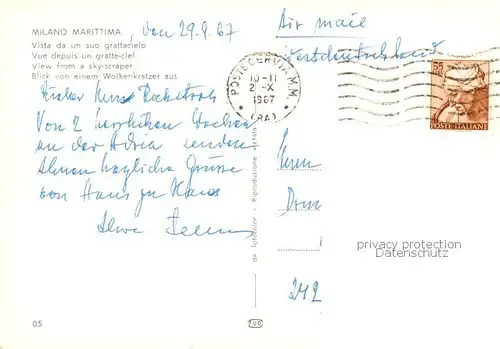 MILANO MARITTIMA, den 29.9.67
Vista da un suo grattacielo
Vue depuis un gratte-ciel
View from a sky-scraper
Blick von einem Wolkenkratzer aus
Air mail
Westdeutschland
POSTE CERVIA M.M.
10-11
2-X
1967
(RA)
55
POSTE ITALIANE
Lieber Herr
Von 2 herrlichen Wochen
an der Adria senden
Ihnen herzliche Grüße
von Haus zu Haus
Ihre
Herrn
Dom
242
privacy protection
Datenschutz
da fotocolor - Riproduzione vietata
05